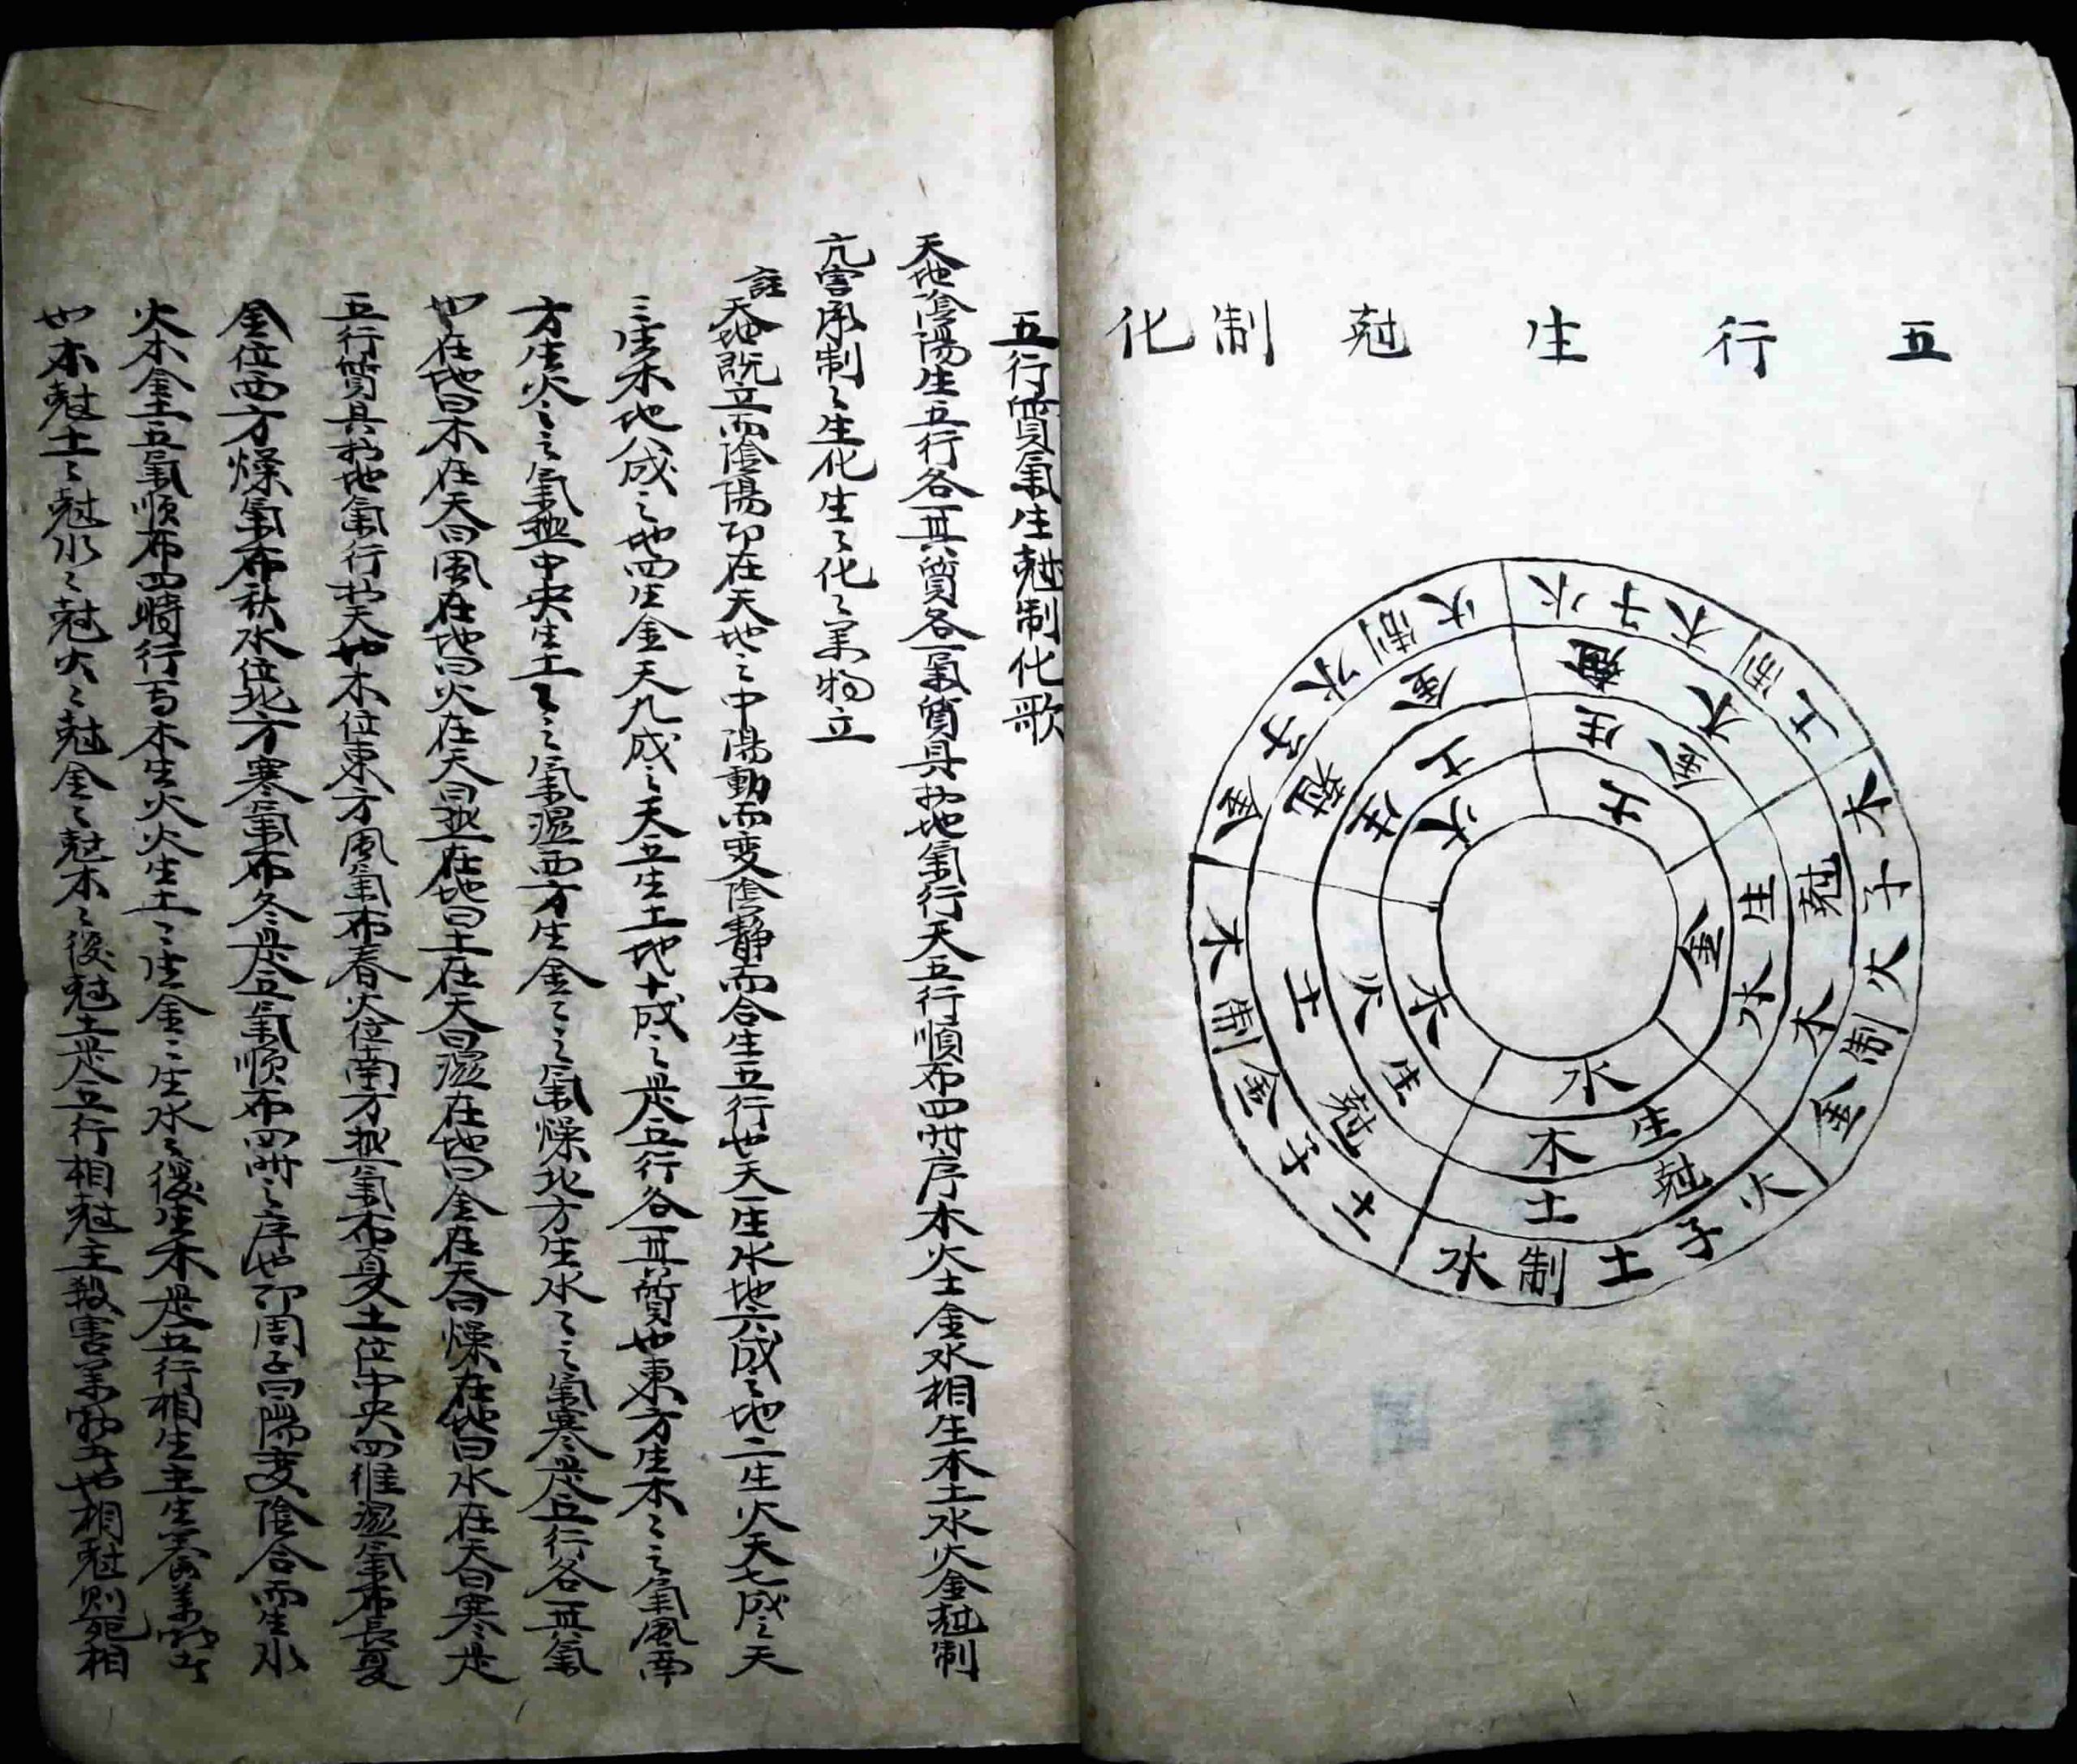 五行生尅制化
水子木制土
尅木
生金
土
木子火制金
尅木
生水
金
火子土制水
尅土
生木
水
土子金制木
尅土
生火
木
金子水制火
尅金
生土
火
五行質氣生尅制化歌
天地陰陽生五行各一其質各一氣質具於地氣行天五行順布四时序木火土金水相生木土水火金尅制
亢害承制〻生化生〻化〻萬物立
註天地既立而陰陽即在天地之中陽動而变陰靜而合生五行也天一生水地六成之地二生火天七成之天
三生木地八成之地四生金天九成之天五生土地十成之是五行各一其質也東方生木〻之氣風南
方生火〻之氣熱中央生土〻之氣濕西方生金〻之氣燥北方生水〻之氣寒是五行各一其氣
也在地曰木在天曰風在地曰火在天曰熱在地曰土在天曰濕在地曰金在天曰燥在地曰水在天曰寒是
五行質具於地氣行於天也木位東方風氣布春火位南方熱氣布夏土位中央四維濕氣布長夏
金位西方燥氣布秋水位北方寒氣布冬是五氣順布四时之序也即周子曰陽变陰合而生水
火木金土五氣順布四時行焉木生火火生土〻生金〻生水〻復生木是五行相生主生養萬物者
也木尅土〻尅水〻尅火〻尅金〻尅木〻復尅土是五行相尅主殺害萬物者也相尅則死相